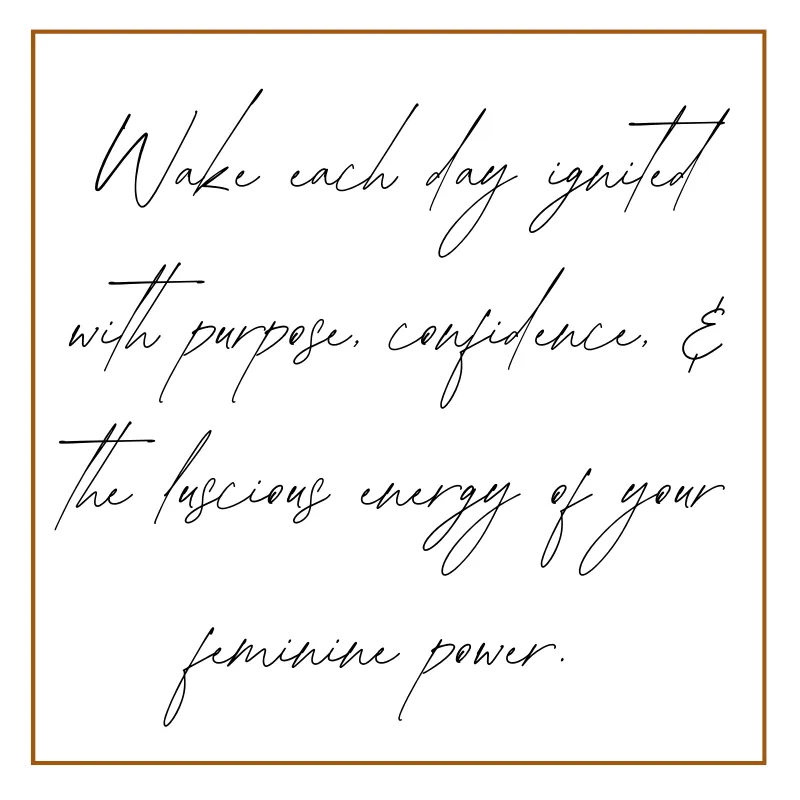 Wake each day ignited
with purpose, confidence, &
the luscious energy of your
feminine power.